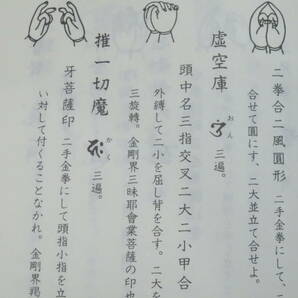 二拳合二風圓形 二手金拳にして、二
合せて圓にす、二大並立て合せよ。
虚空庫 三遍。
おん
頭中名三指交叉二大二小甲合
外縛して二小を屈し背を合す。二大を
三旋轉。金剛界三昧耶會業菩薩の印也
摧一切魔 三遍。
かく
牙菩薩印 二手金拳にして頭指小指を立
い対して付くることなかれ。金剛界羯